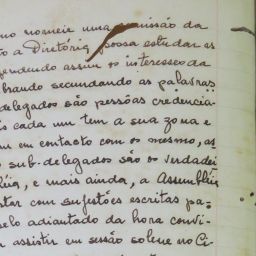 mo nomeie uma comissão da
to a Diretoria possa estudar os
fendendo assim o interesse da
brando secundando as palavras
delegados são pessôas credencia
is cada um tem a sua zona e
em contacto com o mesmo, os
sub-delegados são os verdadei
e mais ainda, a Assembléia
tar com sujestões escritas pa=
elo adiantado da hora convi-
assistir em sessão solene no Ci-